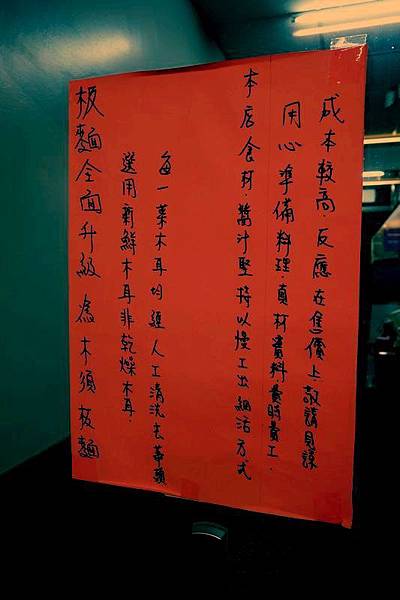 板麵全面升級為木須板麵
選用新鮮木耳非乾燥木耳.
每一葉木耳均經人工清洗去蒂頭
本店食材醬汁堅持以慢工出細活方式
用心準備料理.真材實料.費時費工.
成本較高反應在售價上.敬請見諒